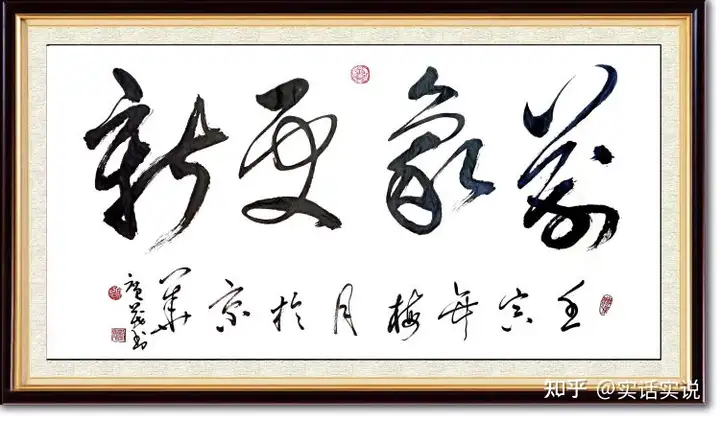 萬象更新
壬寅年梅月於京華
知乎 @实话实说